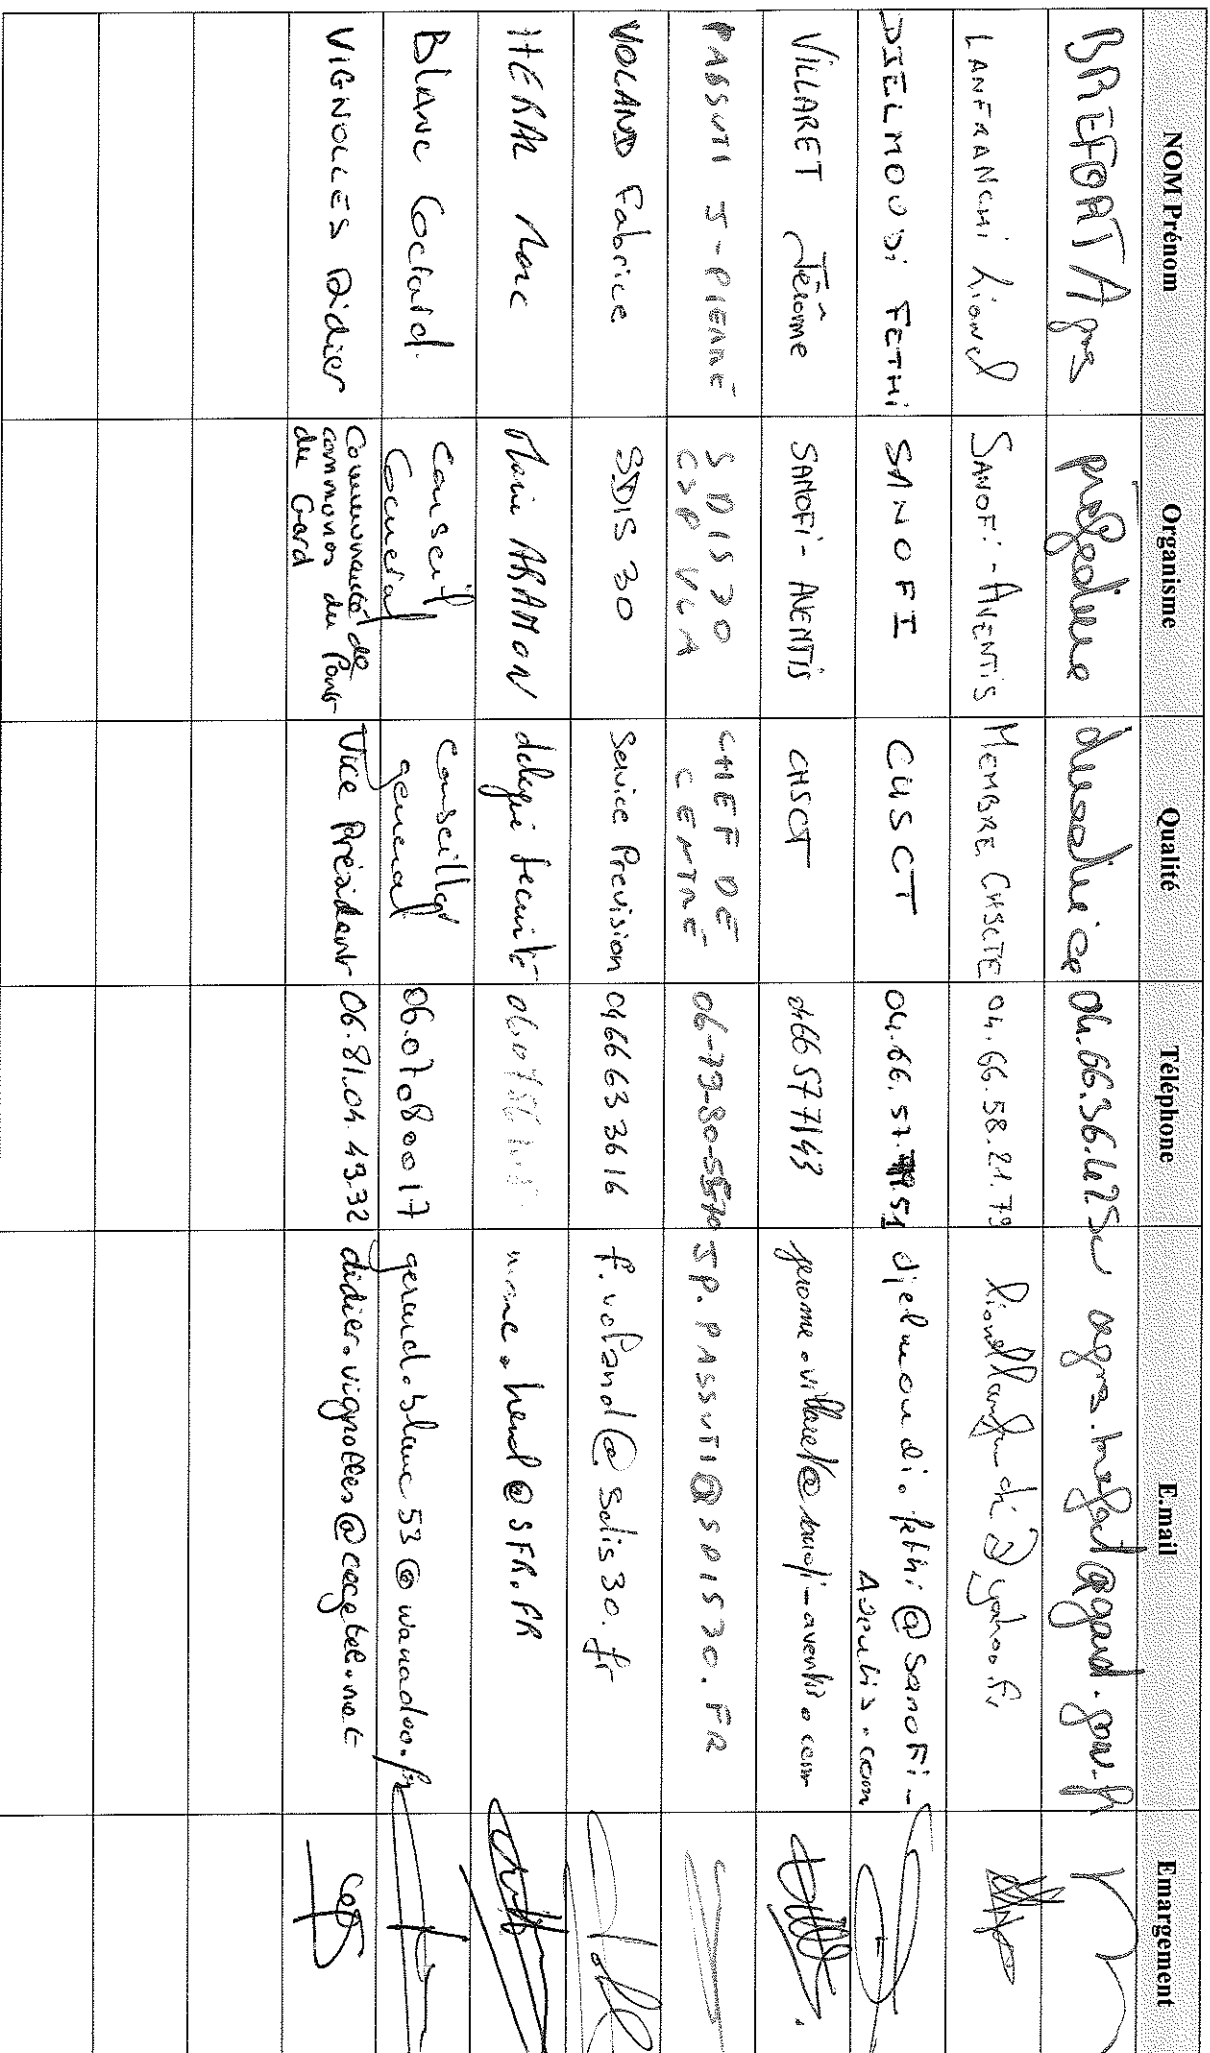 NOM Prénom Organisme Qualité Téléphone E.mail Emargement
BREFORT Agnes préfecture directrice 04.66.36.42.50 agnes.brefort@gard.gouv.fr
LANFRANCHI Lionel SANOFI-AVENTIS MEMBRE CHSCTE 04.66.58.21.79 @yahoo.fr
DJELMOUDI FETHI SANOFI CHSCT 04.66.57. .51 djelmoudi.fethi@sanofi-
Aventis.com
VILLARET Jérôme SANOFI-AVENTIS CHSCT 0466577143 jerome.villaret@sanofi-aventis.com
PASSUTI J-PIERRE SDIS30 CHEF DE 06-79-80-55 JP.PASSUTI@SDIS30.FR
CSP VLA CENTRE
VOLAND Fabrice SDIS 30 Service Prevision 0466633616 f.voland@sdis30.fr
HERAL Marc Mairie ARAMON délégué securité marc.heral@SFR.FR
Blanc Gerard Conseil Conseiller 06.07080017 gerard.blanc53@wanadoo.fr
General general
VIGNOLLES Didier Communauté de Vice Président 06.81.04.49.32 didier.vignolles@cegetel.net
communes du Pont
du Gard